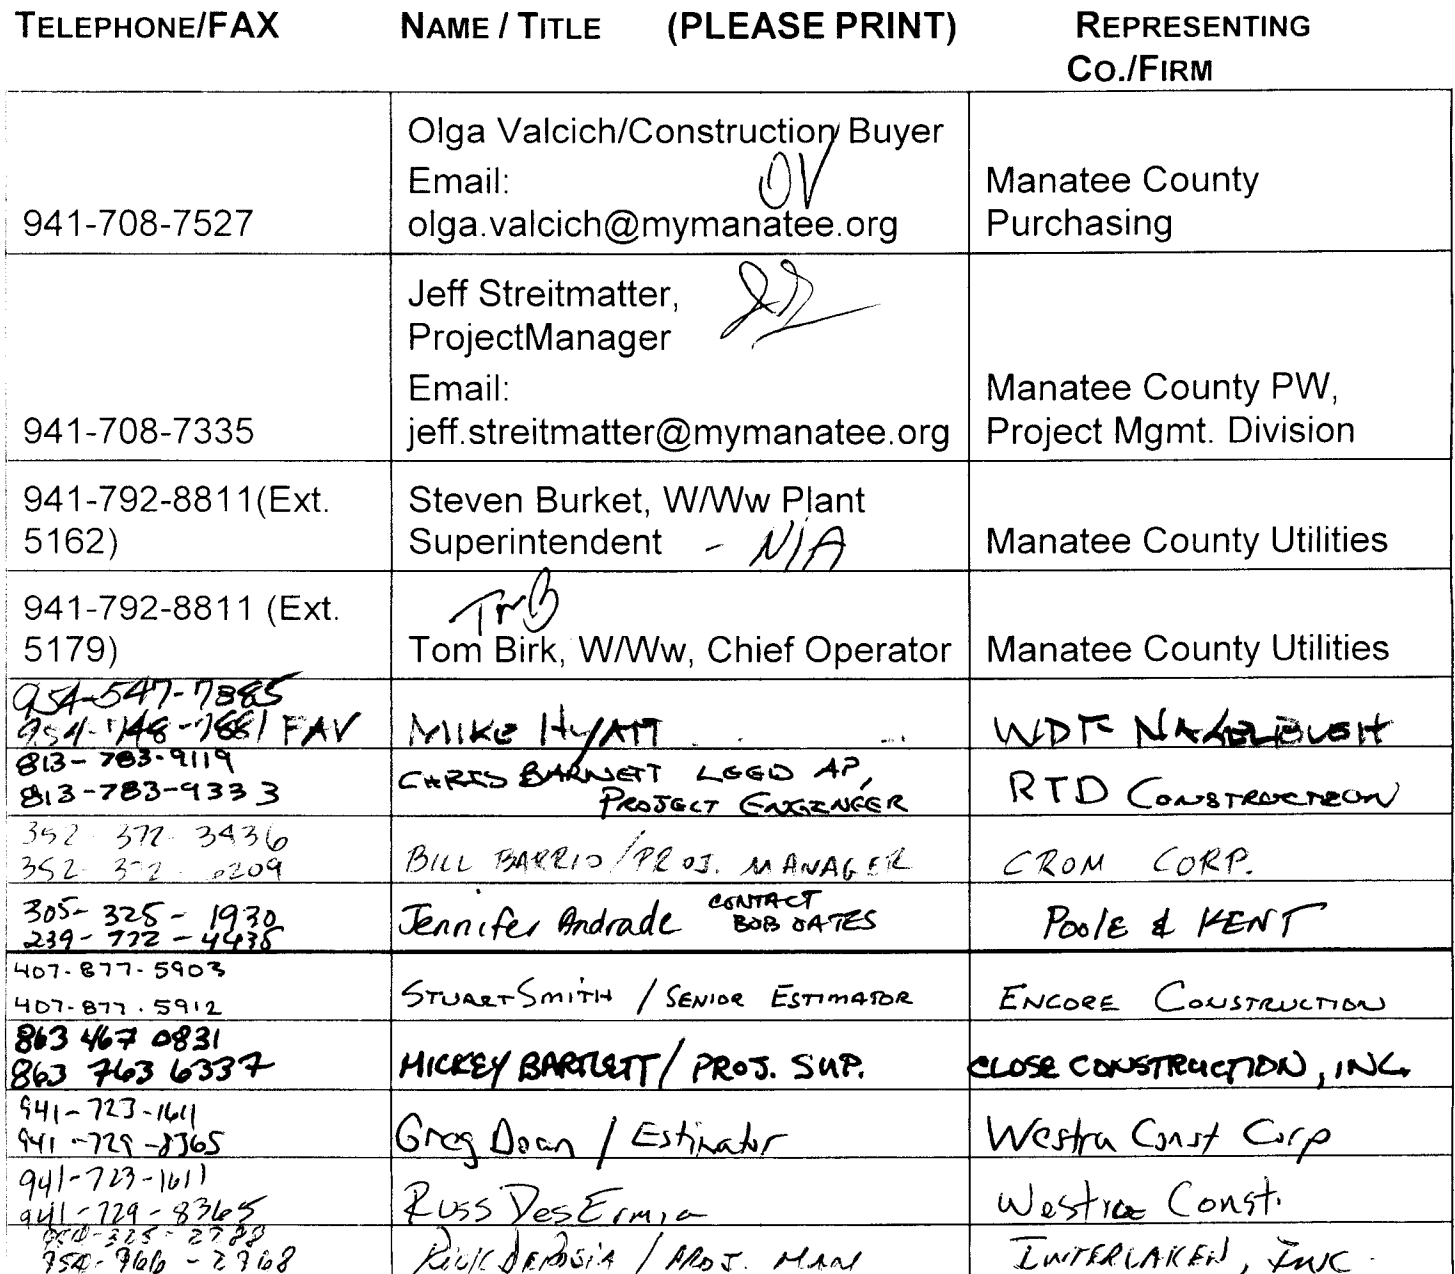 TELEPHONE/FAX NAME / TITLE (PLEASE PRINT) REPRESENTING
CO./FIRM
Olga Valcich/Construction Buyer
Email: OV
941-708-7527 olga.valcich@mymanatee.org
Manatee County
Purchasing
Jeff Streitmatter,
ProjectManager
Email:
941-708-7335 jeff.streitmatter@mymanatee.org
Manatee County PW,
Project Mgmt. Division
941-792-8811(Ext.
5162)
Steven Burket, W/Ww Plant
Superintendent - N/A
Manatee County Utilities
941-792-8811 (Ext.
5179)
TMB
Tom Birk, W/Ww, Chief Operator
Manatee County Utilities
954-547-7885
MIKE HYATT
813-783-9119
813-783-9333
CHRIS BARNETT LEED AP,
PROJECT ENGINEER
RTD CONSTRUCTION
352 372-3436
352
BILL BARRIO/PROJ. MANAGER
CROM CORP.
305-325-1930
239-772-4435
Jennifer Andrade CONTACT
BOB OATES
Poole & KENT
407-877-5903
407-877.5912
STUART SMITH / SENIOR ESTIMATOR
ENCORE CONSTRUCTION
863 467 0831
863 763 6337
MICKEY BARTLETT/ PROJ. SUP.
CLOSE CONSTRUCTION, INC.
941-723-1611
941-729-8365
Greg Doan / Estimator
Westra Const Corp
941-723-1611
941-729-8365
Russ DesErmia
Westra Const.
PROJ. MAN
INTERLAKEN, INC.